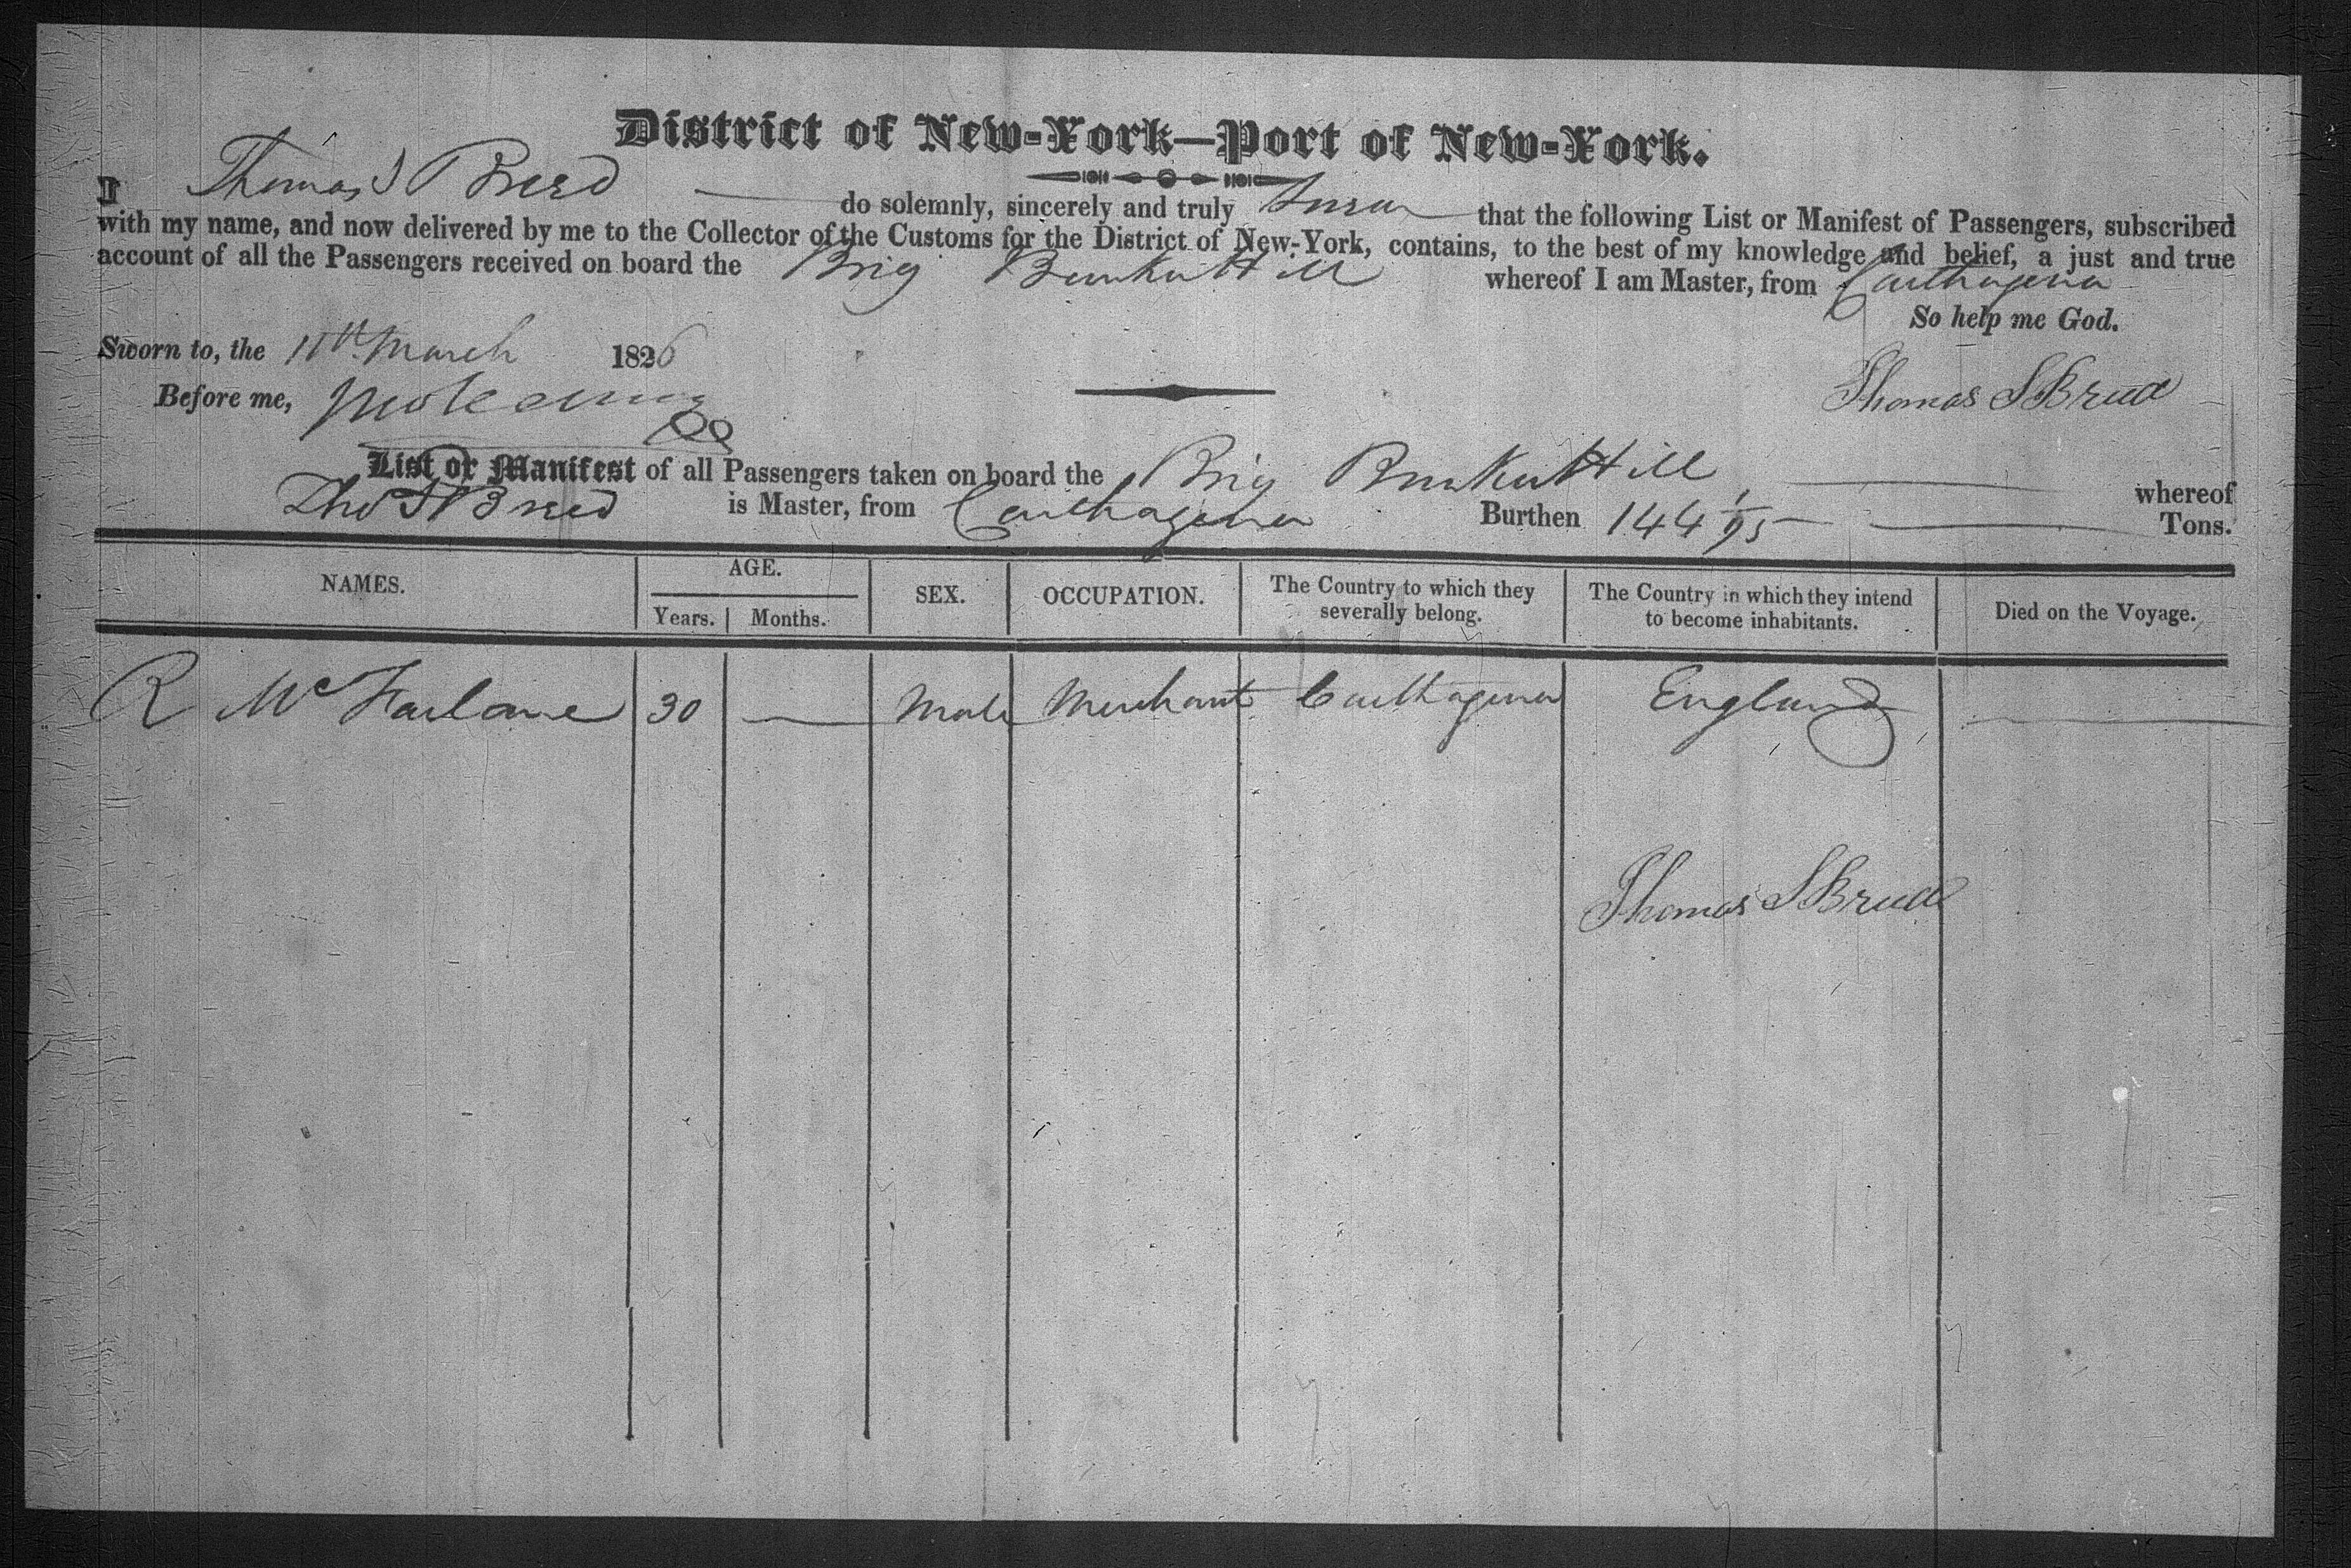 District of New-York—Port of New-York.
I Thomas S Breed do solemnly, sincerely and truly Swear that the following List or Manifest of Passengers, subscribed
with my name, and now delivered by me to the Collector of the Customs for the District of New-York, contains, to the best of my knowledge and belief, a just and true
account of all the Passengers received on board the Brig Bunker Hill whereof I am Master, from Carthagena
So help me God.
Sworn to, the 11th March 1826
Before me,
Thomas S Breed
List or Manifest of all Passengers taken on board the Brig Bunker Hill whereof
Tho S Breed is Master, from Carthagena Burthen 144 1/95 Tons.
NAMES. AGE. SEX. OCCUPATION. The Country to which they severally belong. The Country in which they intend to become inhabitants. Died on the Voyage.
Years. Months.
R McFarlane 30 — Male Merchant Carthagena England —
Thomas S Breed